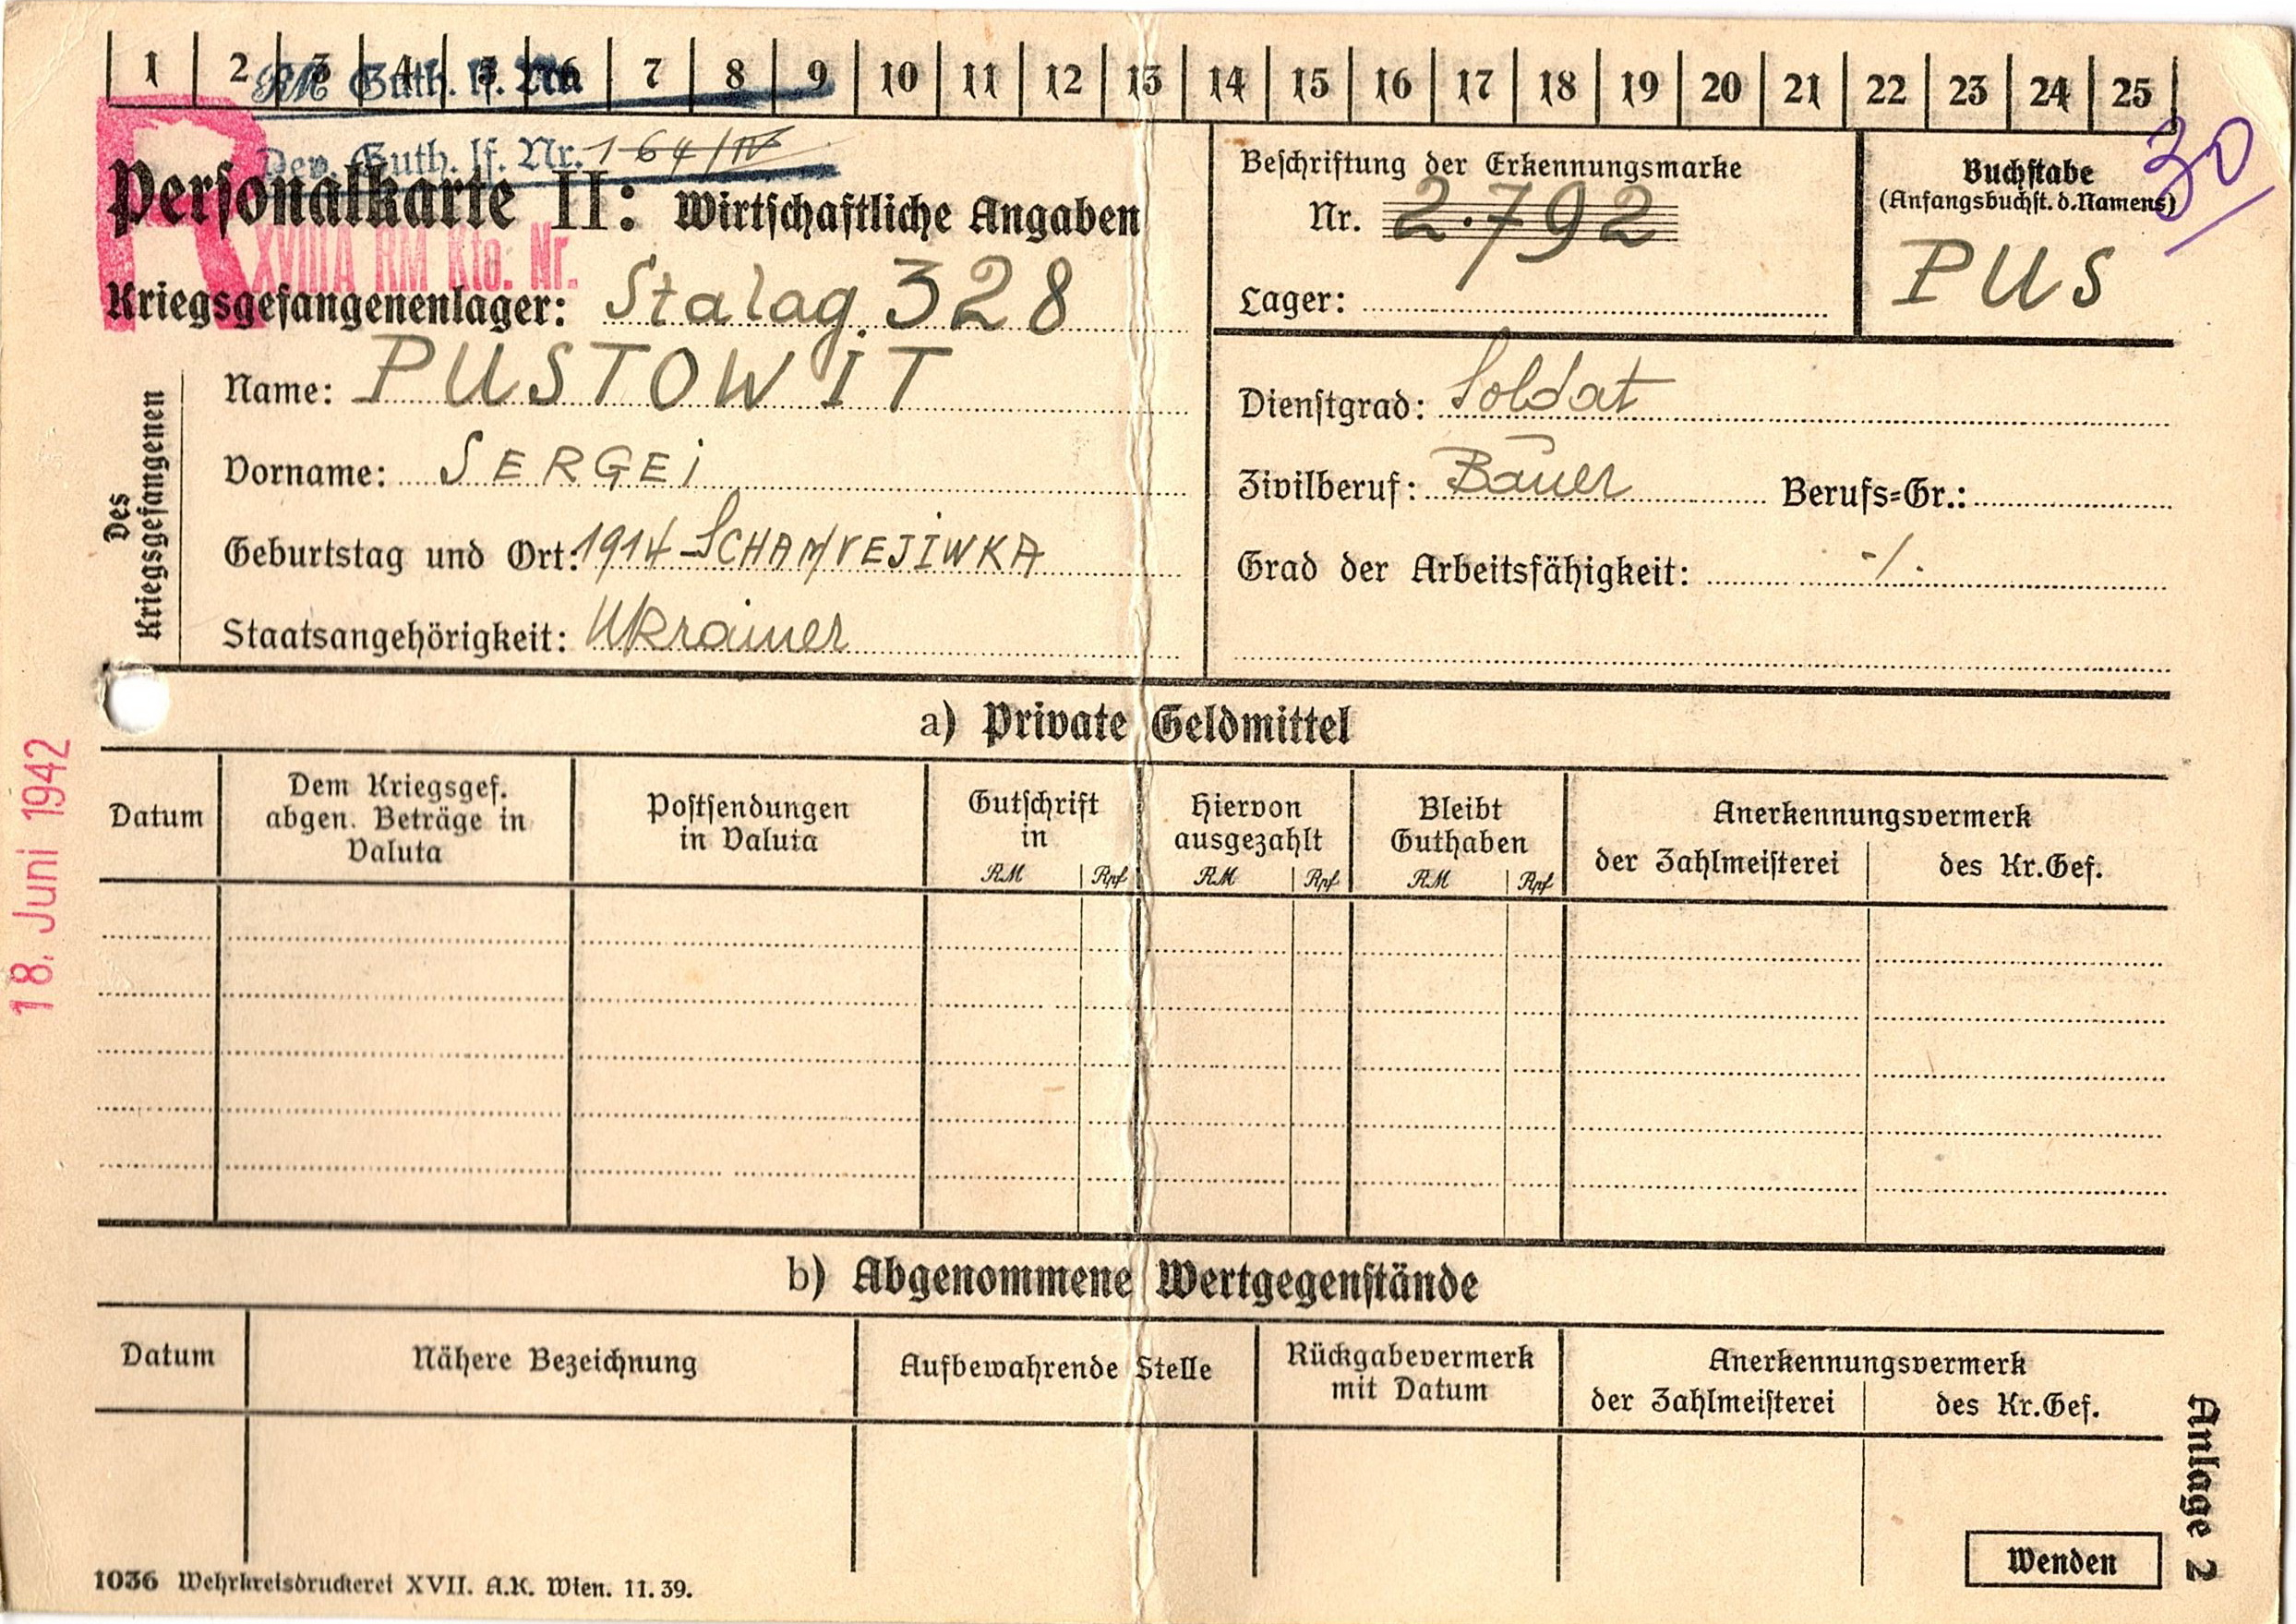 1 2 3 4 5 6 7 8 9 10 11 12 13 14 15 16 17 18 19 20 21 22 23 24 25
RM Guth. lf. Nr.
Dev. Guth. lf. Nr. 164/IV
30
Personalkarte II: Wirtschaftliche Angaben
R XVIII A RM Kto. Nr.
Kriegsgefangenenlager: Stalag 328
Beschriftung der Erkennungsmarke
Nr. 2.792
Lager:
Buchstabe
(Anfangsbuchst. d. Namens)
PUS
Des Kriegsgefangenen
Name: PUSTOWIT
Vorname: SERGEI
Geburtstag und Ort: 1914
Staatsangehörigkeit: Ukrainer
Dienstgrad: Soldat
Zivilberuf: Bauer Berufs=Gr.:
Grad der Arbeitsfähigkeit: -/.
18. Juni 1942
a) Private Geldmittel
Datum
Dem Kriegsgef.
abgen. Beträge in
Valuta
Postsendungen
in Valuta
Gutschrift
in
RM Rpf
Hiervon
ausgezahlt
RM Rpf
Bleibt
Guthaben
RM Rpf
Anerkennungsvermerk
der Zahlmeisterei des Kr.Gef.
b) Abgenommene Wertgegenstände
Datum
Nähere Bezeichnung
Aufbewahrende Stelle
Rückgabevermerk
mit Datum
Anerkennungsvermerk
der Zahlmeisterei des Kr.Gef.
Anlage 2
Wenden
1036 Wehrkreisdruckerei XVII. A.K. Wien. 11. 39.